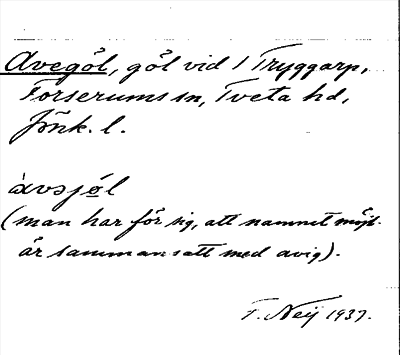 Avegöl, göl vid 1 Tryggarp,
Forserums sn, Tveta hd,
Jönk. l.
àvsjø̲l
(man har för sig, att namnet möjl.
är sammansatt med avig).
F. Neij 1937.